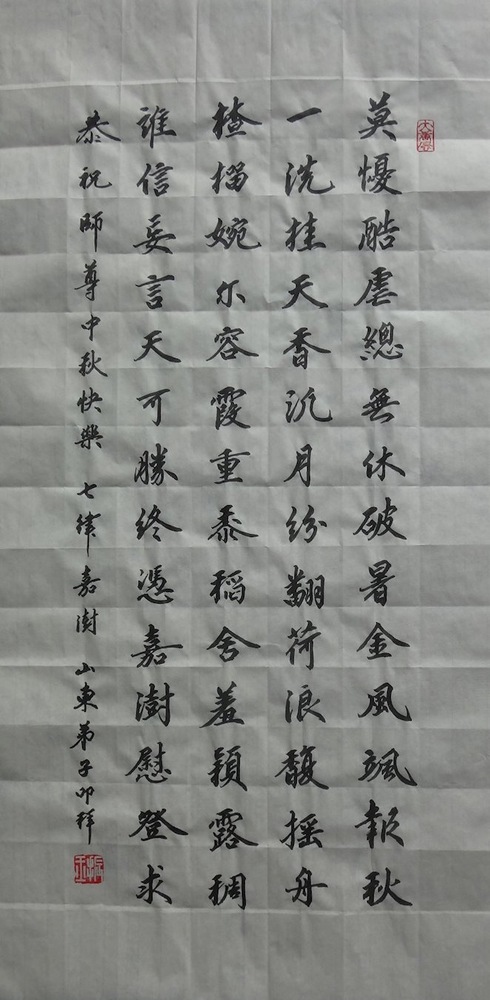 莫憂酷虐總無休破暑金風颯報秋
一洗挂天香沉月紛翻荷浪馥搖舟
楂榴婉尔容霞重黍稻含羞穎露稠
誰信妄言天可勝終憑嘉澍慰登求
恭祝師尊中秋快樂 七律嘉澍 山東弟子叩拜